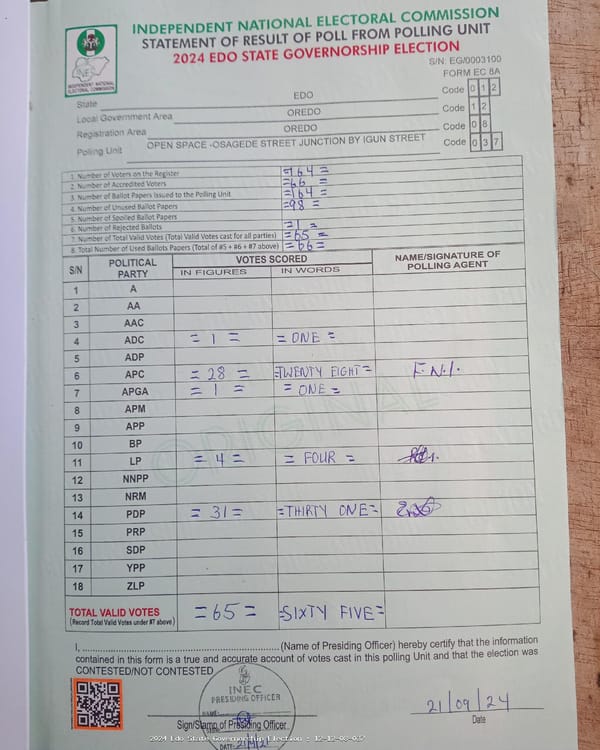 INDEPENDENT NATIONAL ELECTORAL COMMISSION
STATEMENT OF RESULT OF POLL FROM POLLING UNIT
2024 EDO STATE GOVERNORSHIP ELECTION
S/N: EG/0003100
FORM EC 8A
INEC
INDEPENDENT NATIONAL
ELECTORAL COMMISSION
State EDO Code 0 1 2
Local Government Area OREDO Code 1 2
Registration Area OREDO Code 0 8
Polling Unit OPEN SPACE -OSAGEDE STREET JUNCTION BY IGUN STREET Code 0 3 7
1. Number of Voters on the Register =164=
2. Number of Accredited Voters =66=
3. Number of Ballot Papers Issued to the Polling Unit =164=
4. Number of Unused Ballot Papers =98=
5. Number of Spoiled Ballot Papers
6. Number of Rejected Ballots =1=
7. Number of Total Valid Votes (Total Valid Votes cast for all parties) =65=
8. Total Number of Used Ballots Papers (Total of #5 + #6 + #7 above) =66=
S/N POLITICAL PARTY VOTES SCORED NAME/SIGNATURE OF POLLING AGENT
IN FIGURES IN WORDS
1 A
2 AA
3 AAC
4 ADC =1= =ONE=
5 ADP
6 APC =28= =TWENTY EIGHT= F.N.I.
7 APGA =1= =ONE=
8 APM
9 APP
10 BP
11 LP =4= =FOUR=
12 NNPP
13 NRM
14 PDP =31= =THIRTY ONE=
15 PRP
16 SDP
17 YPP
18 ZLP
ORIGINAL
TOTAL VALID VOTES =65= =SIXTY FIVE=
(Record Total Valid Votes under #7 above)
I, ........................................ (Name of Presiding Officer) hereby certify that the information
contained in this form is a true and accurate account of votes cast in this polling Unit and that the election was
CONTESTED/NOT CONTESTED
INEC
PRESIDING OFFICER
NAME:
Sign/Stamp of Presiding Officer
DATE:
21/09/24
Date
2024 Edo State Governorship Election : 12-12-08-037